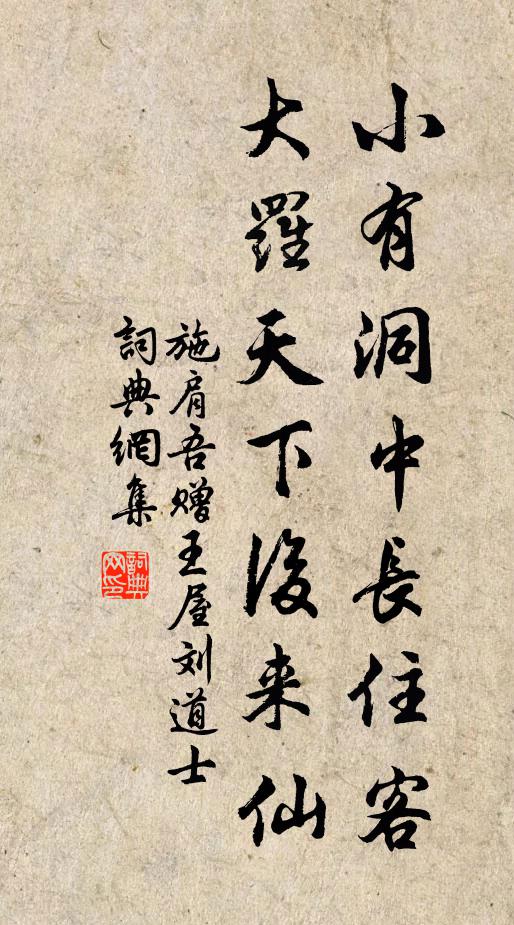 小有洞中長住客
大羅天下後来仙
施肩吾赠王屋刘道士
詞典網集
詞典网印